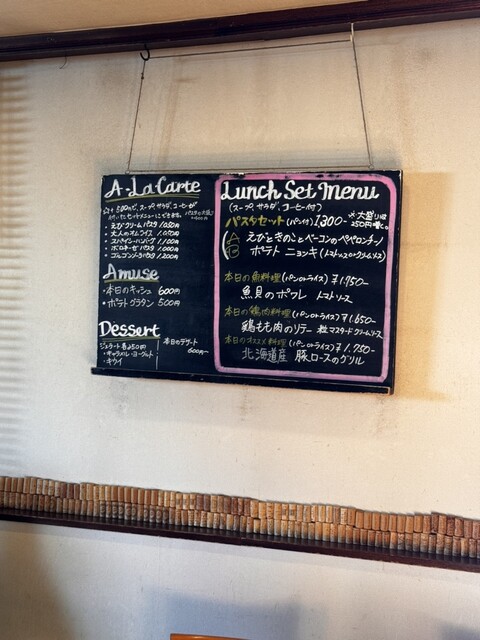 A-La-Carte
付いたセットメニューにできます。
・えびクリームパスタ 1,050
・大人のオムライス 1,050
・スペインハンバーグ 1,100
・ボロネーゼパスタ 1,000
・ゴルゴンゾーラパスタ 1,200
Amuse
・本日のキッシュ 600円
・ポテトグラタン 500円
Dessert
ジェラート各250円
・キャラメル・ヨーグルト
・キウイ
本日のデザート
600円〜
Lunch Set Menu
(スープ、サラダ、コーヒー付)
パスタセット (パン付) 1,300-
※大盛りは
250円増し。
A えびときのことベーコンのペペロンチーノ
B ポテト ニョッキ (トマトソースorクリームソース)
本日の魚料理 (パンorライス) ¥1,750-
魚貝のポワレ トマトソース
本日の鶏肉料理 (パンorライス) ¥1,650-
鶏もも肉のソテー 粒マスタードクリームソース
本日のオススメ料理 (パンorライス) ¥1,750-
北海道産 豚ロースのグリル